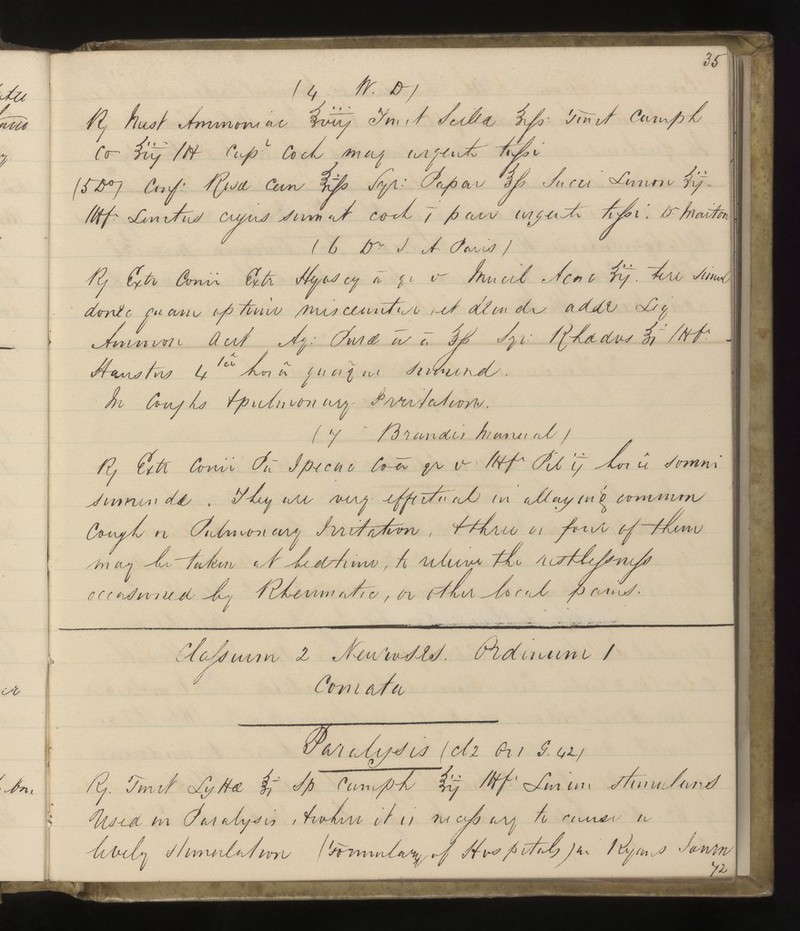 35
(4 W. D)
R/ Mist Ammoniac ℥viij Tinct Scilla ʒifs. Tinct Camph
Co ʒiij Mf Capt Coch mag urgente tufsi
(5 Do) Conf: Rosæ Can Syr: Papav ℥fs Succi Limon ʒij.
Mf. Linctus cujus sumat coch i parv urgente tufsi. Dr Marton
(6 Dr J A Paris)
R/ Extr Conii Extr Hyoscy ā gr v Mucil Acac ʒij. tere simul
donec quam optime misceantur, et deinde adde Liq
Ammon Acet Aq: Puræ ā ā ℥fs Syr: Rhædos ʒi Mf.
Haustus 4tâ horâ quâque sumend.
In Coughs & pulmonary Irritation.
(7 Brandis Manual)
R/ Extr Conii Pu Ipecac Co ā gr v Mf. Pil ij horâ somni
sumendæ. They are very effectual in allaying common
Cough or Pulmonary Irritation, & three or four of them
may be taken at bedtime, to relieve the restlefsnefs
occasioned by Rheumatic, or other local pains.
Clafsium 2 Neuroses. Ordinum 1
Comata
Paralysis (cl2 Or1 G.42)
R/. Tinct Lyttæ ℥i Sp Camph Mf. Linim stimulans
Used in Paralysis, & when it is necefsary to cause a
lively stimulation (Formulary of Hospitals) in Ryans Journ
72